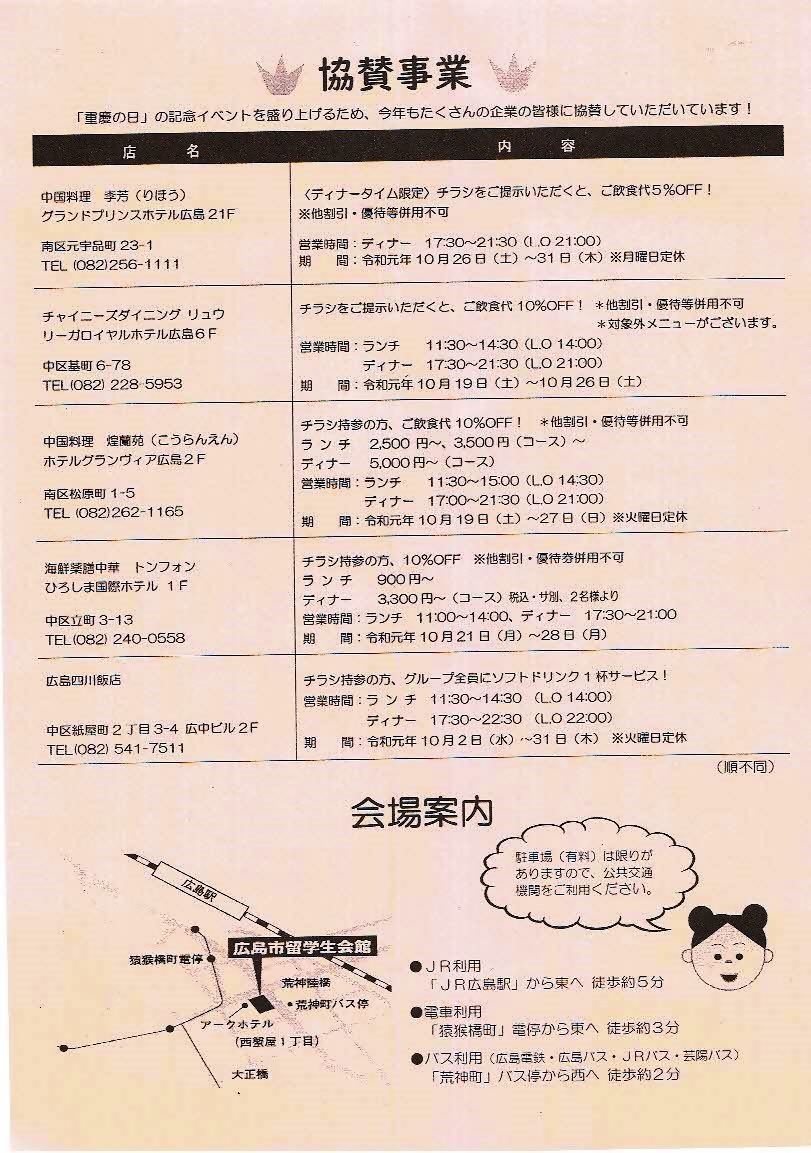 協賛事業
「重慶の日」の記念イベントを盛り上げるため、今年もたくさんの企業の皆様に協賛していただいています！
店　名
内　容
中国料理　李芳（りほう）
グランドプリンスホテル広島21F
南区元宇品町23-1
TEL (082)256-1111
〈ディナータイム限定〉チラシをご提示いただくと、ご飲食代5％OFF！
※他割引・優待等併用不可
営業時間：ディナー　17:30～21:30（L.O 21:00）
期　　間：令和元年10月26日（土）～31日（木）※月曜日定休
チャイニーズダイニング リュウ
リーガロイヤルホテル広島6F
中区基町6-78
TEL(082) 228-5953
チラシをご提示いただくと、ご飲食代10％OFF！　＊他割引・優待等併用不可
＊対象外メニューがございます。
営業時間：ランチ　　11:30～14:30（L.O 14:00）
ディナー　17:30～21:30（L.O 21:00）
期　　間：令和元年10月19日（土）～10月26日（土）
中国料理　煌蘭苑（こうらんえん）
ホテルグランヴィア広島2F
南区松原町1-5
TEL (082)262-1165
チラシ持参の方、ご飲食代10％OFF！　＊他割引・優待等併用不可
ランチ　2,500円～、3,500円（コース）～
ディナー　5,000円～（コース）
営業時間：ランチ　　11:30～15:00（L.O 14:30）
ディナー　17:00～21:30（L.O 21:00）
期　　間：令和元年10月19日（土）～27日（日）※火曜日定休
海鮮薬膳中華　トンフォン
ひろしま国際ホテル 1F
中区立町3-13
TEL(082) 240-0558
チラシ持参の方、10％OFF　※他割引・優待券併用不可
ランチ　　900円～
ディナー　3,300円～（コース）税込・サ別、2名様より
営業時間：ランチ　11:00～14:00、ディナー　17:30～21:00
期　　間：令和元年10月21日（月）～28日（月）
広島四川飯店
中区紙屋町2丁目3-4 広中ビル2F
TEL(082) 541-7511
チラシ持参の方、グループ全員にソフトドリンク1杯サービス！
営業時間：ランチ　11:30～14:30（L.O 14:00）
ディナー　17:30～22:30（L.O 22:00）
期　　間：令和元年10月2日（水）～31日（木）　※火曜日定休
（順不同）
会場案内
駐車場（有料）は限りが
ありますので、公共交通
機関をご利用ください。
広島駅
広島市留学生会館
猿猴橋町電停
荒神陸橋
荒神町バス停
アークホテル
（西蟹屋1丁目）
大正橋
●ＪＲ利用
「ＪＲ広島駅」から東へ 徒歩約5分
●電車利用
「猿猴橋町」電停から東へ 徒歩約3分
●バス利用（広島電鉄・広島バス・ＪＲバス・芸陽バス）
「荒神町」バス停から西へ 徒歩約2分